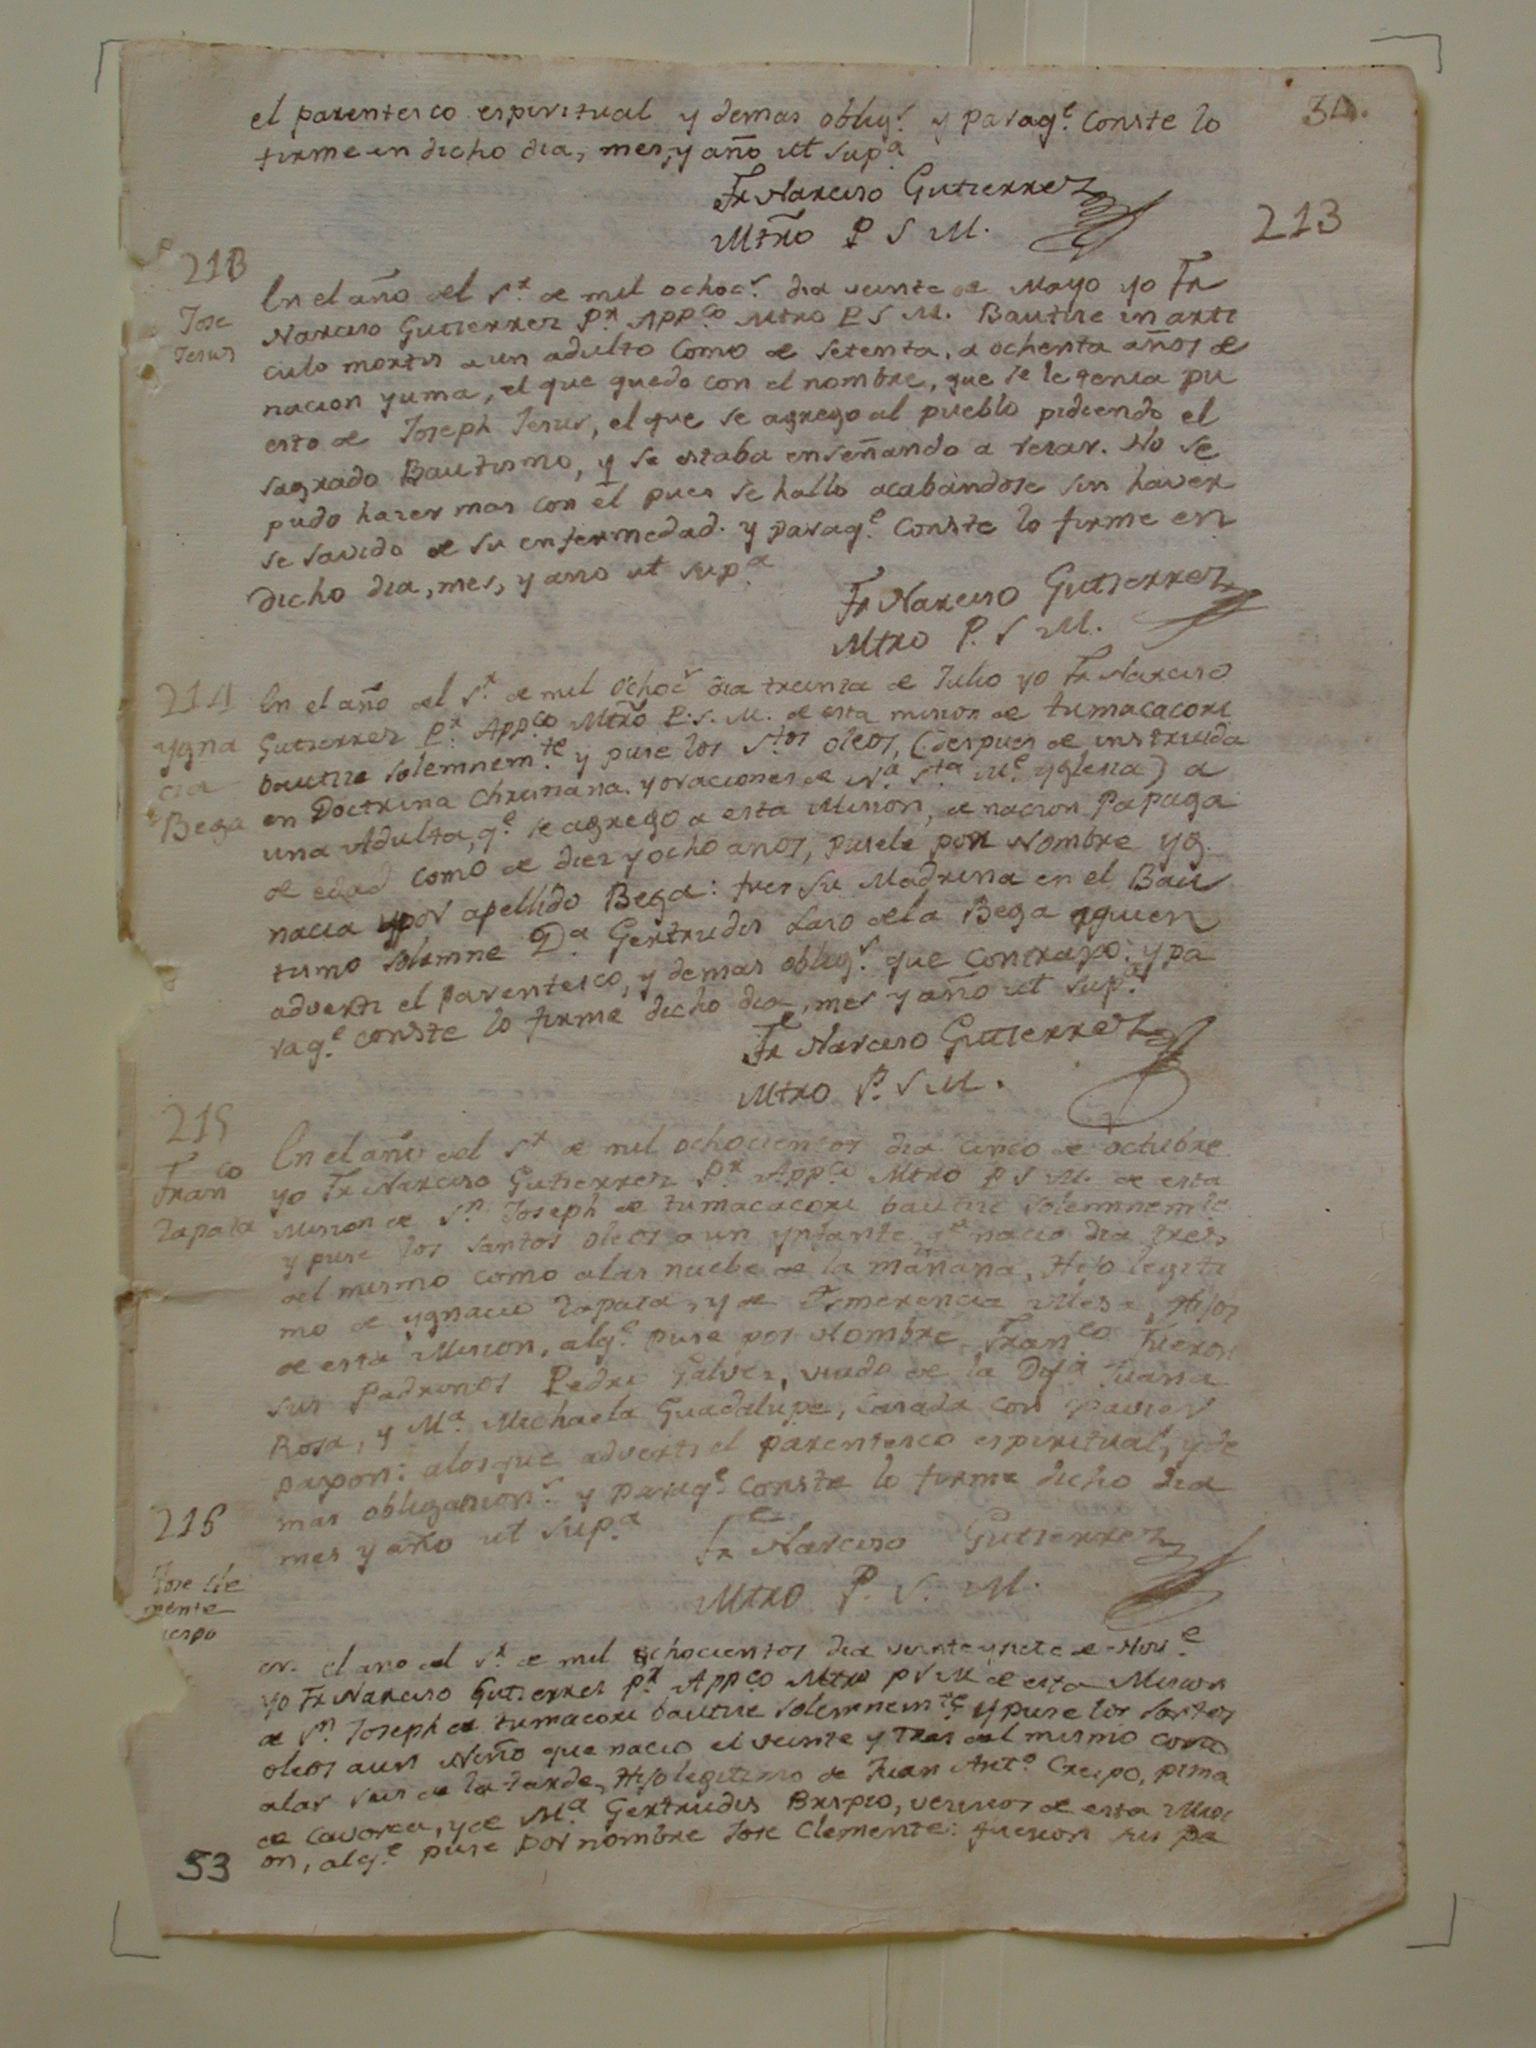 34.
el parentesco espiritual y demas oblig.s y paraq.e Conste lo
firme en dicho dia, mes, y año ut sup.a
Fr Narciso Gutierrez
Mtrõ P S M.
213
213
Jose
Jesus
En el año del S.r de mil ochoc.s dia veinte de Mayo yo Fr
Narciso Gutierrez P.r App.co Mtro P S M. Bautise in arti
culo mortis a un adulto Como de setenta, a ochenta años de
nacion yuma, el que quedo con el nombre, que se le tenia pu
esto de Joseph Jesus, el que se agrego al pueblo pidiendo el
sagrado Bautismo, y se estaba enseñando a resar. No se
pudo hazer mas con el pues se hallo acabandose sin haver
se savido de su enfermedad. y paraq.e Conste lo firme en
dicho dia, mes, y año ut sup.a
Fr Narciso Gutierrez
Mtro P. S M.
214
Ygna
cia
Bega
En el año del S.r de mil ochoc.s dia treinta de Julio yo Fr Narciso
Gutierrez P.r App.co Mtrõ P. S. M. de esta mision de tumacacori
bautise solemnem.te y puse los S.tos oleos, (despues de instruida
en Doctrina Christiana. y oraciones de N.a S.ta M.e Yglesia) a
una Adulta, q.e se agrego a esta Mision, de nacion Papaga
de edad como de diez y ocho anos, pusele por Nombre Yg
nacia y por apellido Bega: fue su Madrina en el Bau
tismo solemne D.a Gertrudis Laso de la Bega a quien
adverti el parentesco, y demas oblig.s que Contrajo: y pa
raq.e conste lo firme dicho dia, mes y año ut sup.a
Fr Narciso Gutierrez
Mtro P. S M.
215
Fran.co
Zapata
En el año del S.r de mil ochocientos dia cinco de octubre
yo Fr Narciso Gutierrez P.r App.co Mtro P S M. de esta
Mision de S.n Joseph de tumacacori bautise solemnem.te
y puse los santos oleos a un ynfante q.e nacio dia tres
del mismo como a las nuebe de la mañana, Hijo legiti
mo de ygnacio Zapata, y de Hijos
de esta Mision, al q.e puse por Nombre Fran.co Fueron
sus Padrinos Pedro Galvez, viudo de la Dif.a Juana
Rosa, y M.a Michaela Guadalupe, Casada con Xavier
: a los que adverti el parentesco espiritual, y de
mas obligacion.s y paraq.e Conste lo firme dicho dia
mes y año ut sup.a
Fr Narciso Gutierrez
Mtro P. S. M.
216
Jose Cle
mente
en el ano del S.r de mil ochocientos dia veinte y siete de Nov.e
yo Fr Narciso Gutierrez P.r App.co Mtro P S M de esta Mision
de S.n Joseph de tumacori bautise solemnem.te y puse los santos
oleos a un Niño que nacio el veinte y tres del mismo como
a las seis de la tarde, Hijo legitimo de Juan Ant.o Crespo, pima
de Cavorca, y de M.a Gertrudis, vecinos de esta Misi
on, al q.e puse por nombre Jose Clemente: fueron sus pa
53